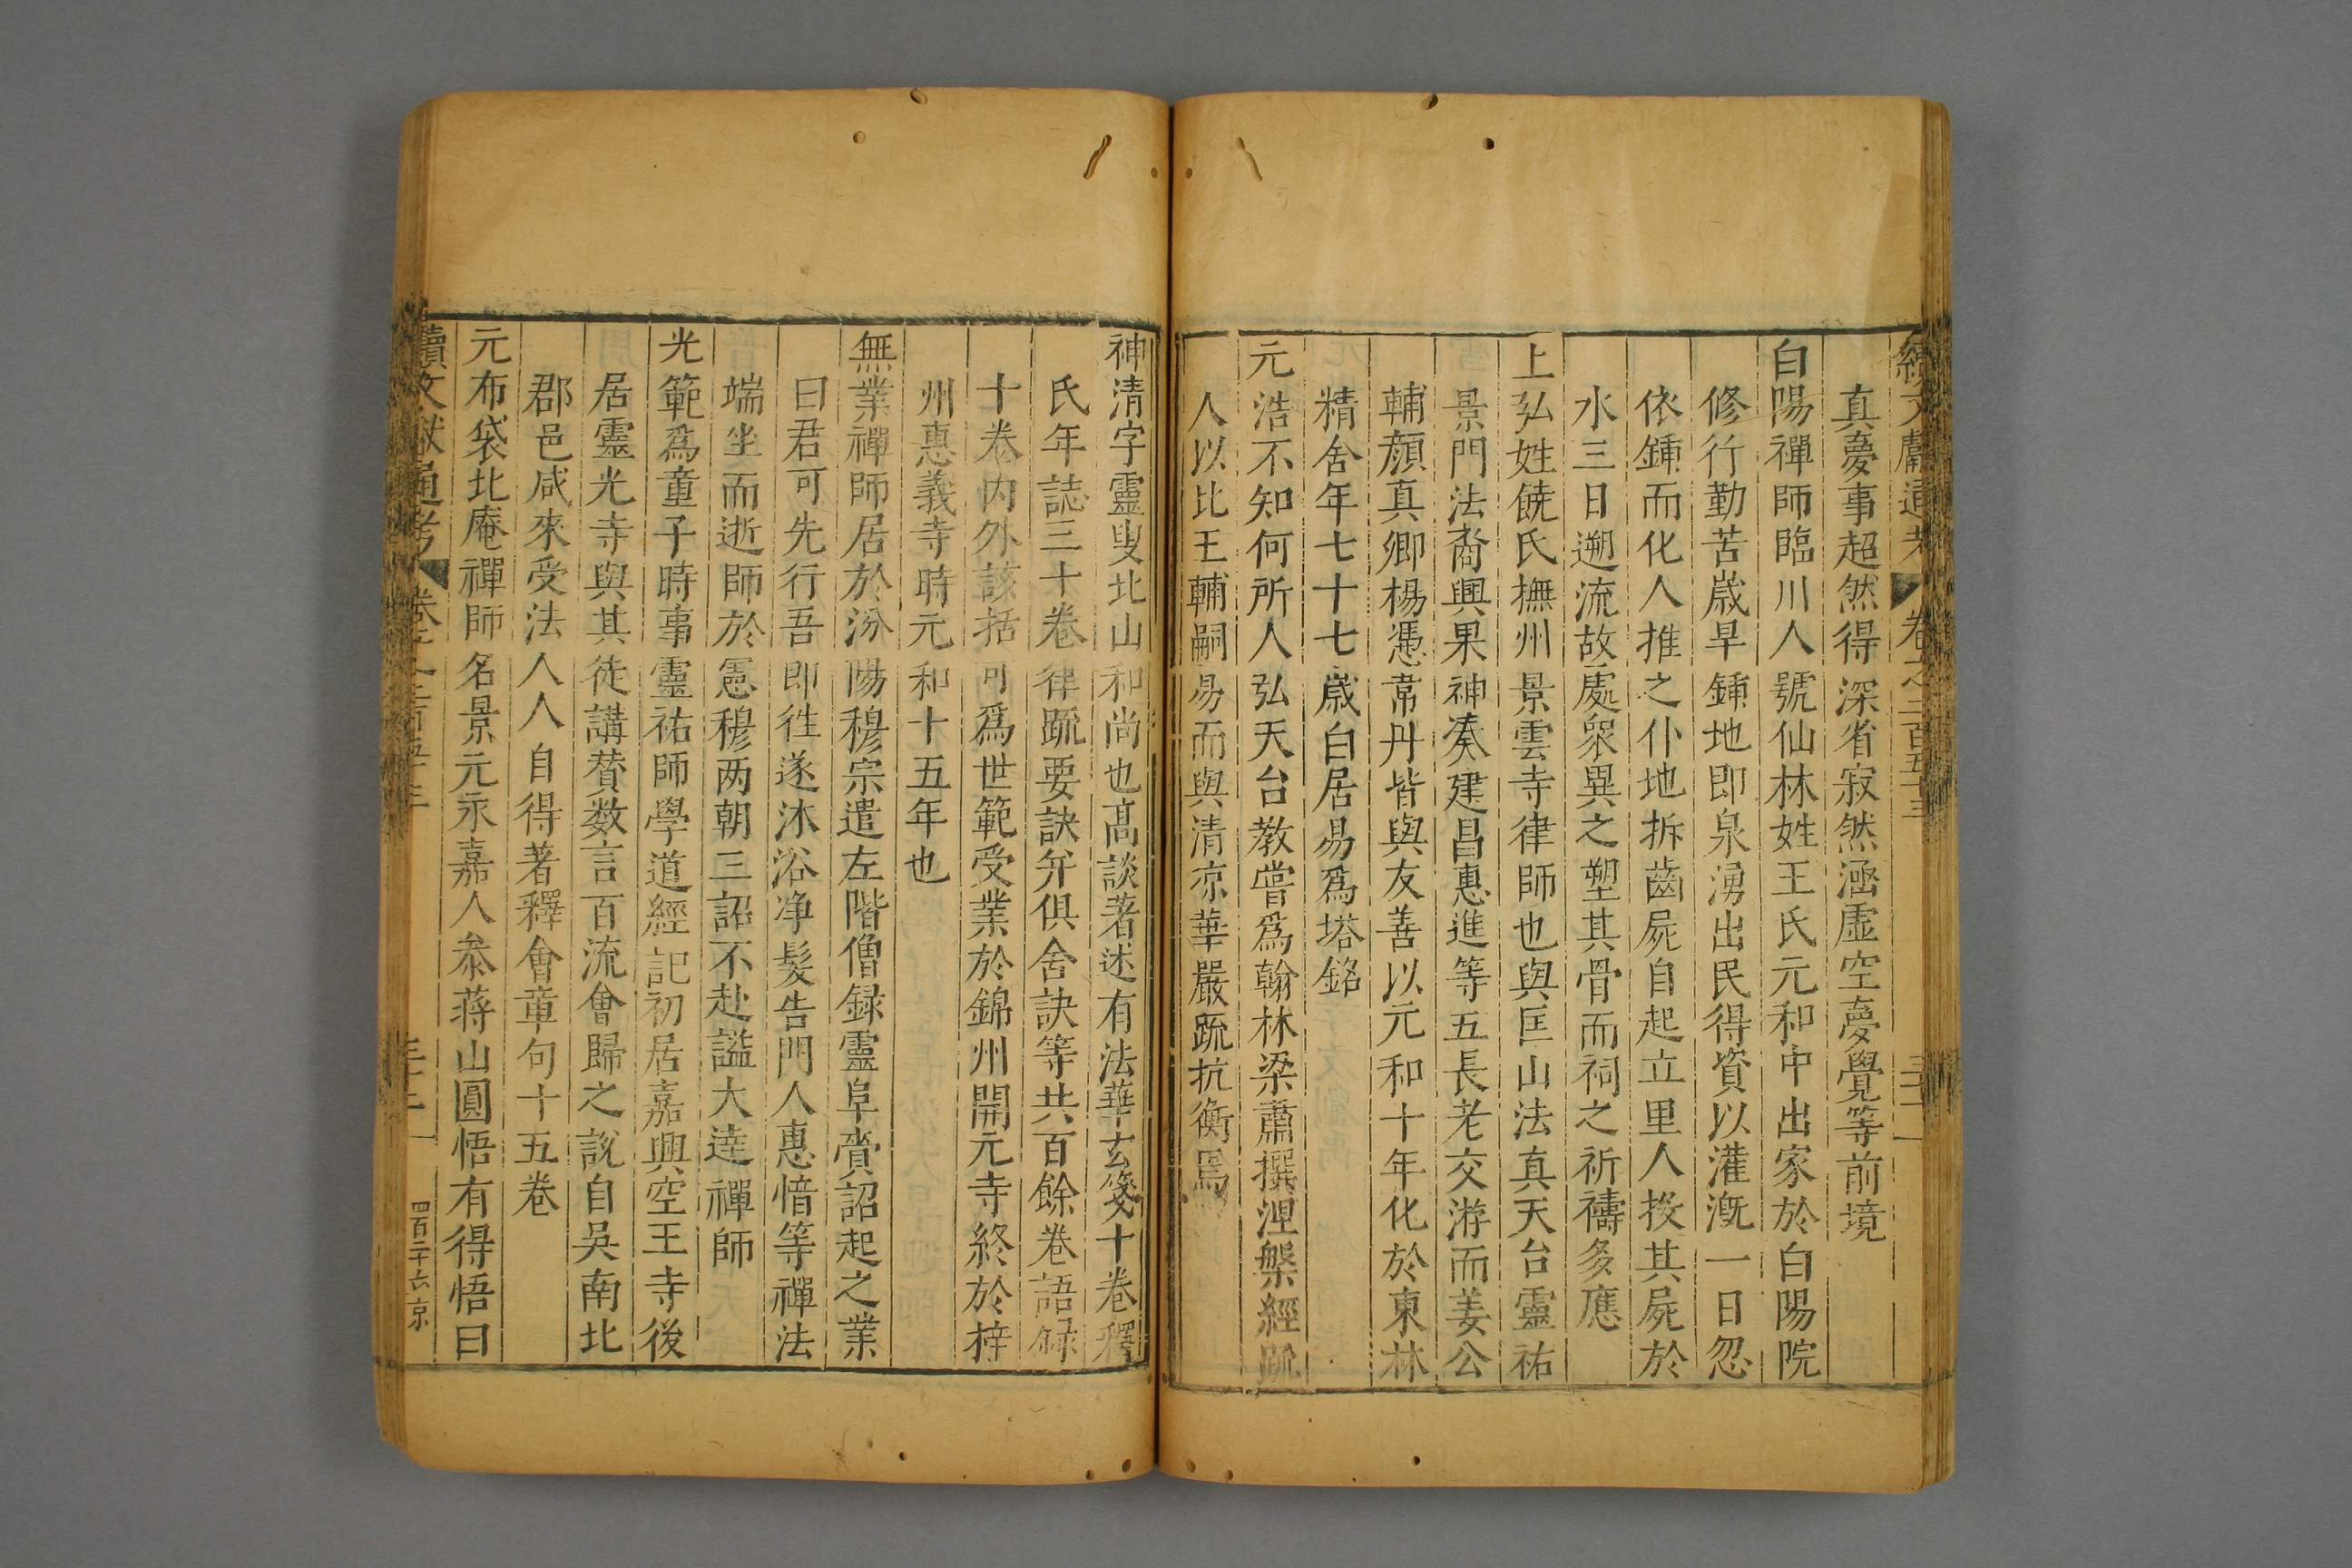 續文獻通考 卷之二百五十三
真憂事超然得深省寂然涵虛空夢覺等前境
白陽禪師臨川人號仙林姓王氏元和中出家於白陽院
修行勤苦嵗旱鍾地即泉湧出民得資以灌漑一日忽
依鍾而化人推之仆地拆齒屍自起立里人投其屍於
水三日遡流故處衆異之塑其骨而祠之祈禱多應
上弘姓饒氏撫州景雲寺律師也與匡山法真天台靈祐
景門法裔興果神湊建昌惠進等五長老交游而姜公
輔顔真卿楊憑韋丹皆與友善以元和十年化於東林
精舍年七十七嵗白居易爲塔銘
元浩不知何所人弘天台教嘗爲翰林梁肅撰湼槃經䟽
人以比王輔嗣易而與清凉華嚴䟽抗衡焉
神清字靈叟北山和尚也髙談著述有法華玄箋十卷釋
氏年誌三十卷律䟽要訣弁俱舍訣等共百餘卷語録
十卷内外該括可爲世範受業於錦州開元寺終於梓
州惠義寺時元和十五年也
無業禪師居於汾陽穆宗遣左階僧録靈阜賫詔起之業
曰君可先行吾即徃遂沐浴净髮告門人惠愔等禪法
端坐而逝師於憲穆两朝三詔不赴謚大逹禪師
光範爲童子時事靈祐師學道經記初居嘉興空王寺後
居靈光寺與其徒講賛数言百流會歸之說自吳南北
郡邑咸來受法人人自得著釋會章句十五卷
元布袋北庵禪師名景元永嘉人叅蒋山圓悟有得悟曰
續文獻通考 四百二十六京